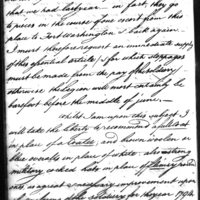 that we had last year — in fact, they go
to pieces in the course of one escort from this
place to Fort Washington & back again.
I must therefore request an immediate supply
of this essential article, for which stoppages
must be made from the pay of the soldiery
otherwise the legion will most certainly be
barefoot before the middle of June.—
Whilst I am upon this subject I
will take the liberty to recommend
in place of a Coatee, and brown woolen or
overalls in place of white also strong
military cocked hats in place of
as a great & necessary improvement upon
soldiery for the year 1794